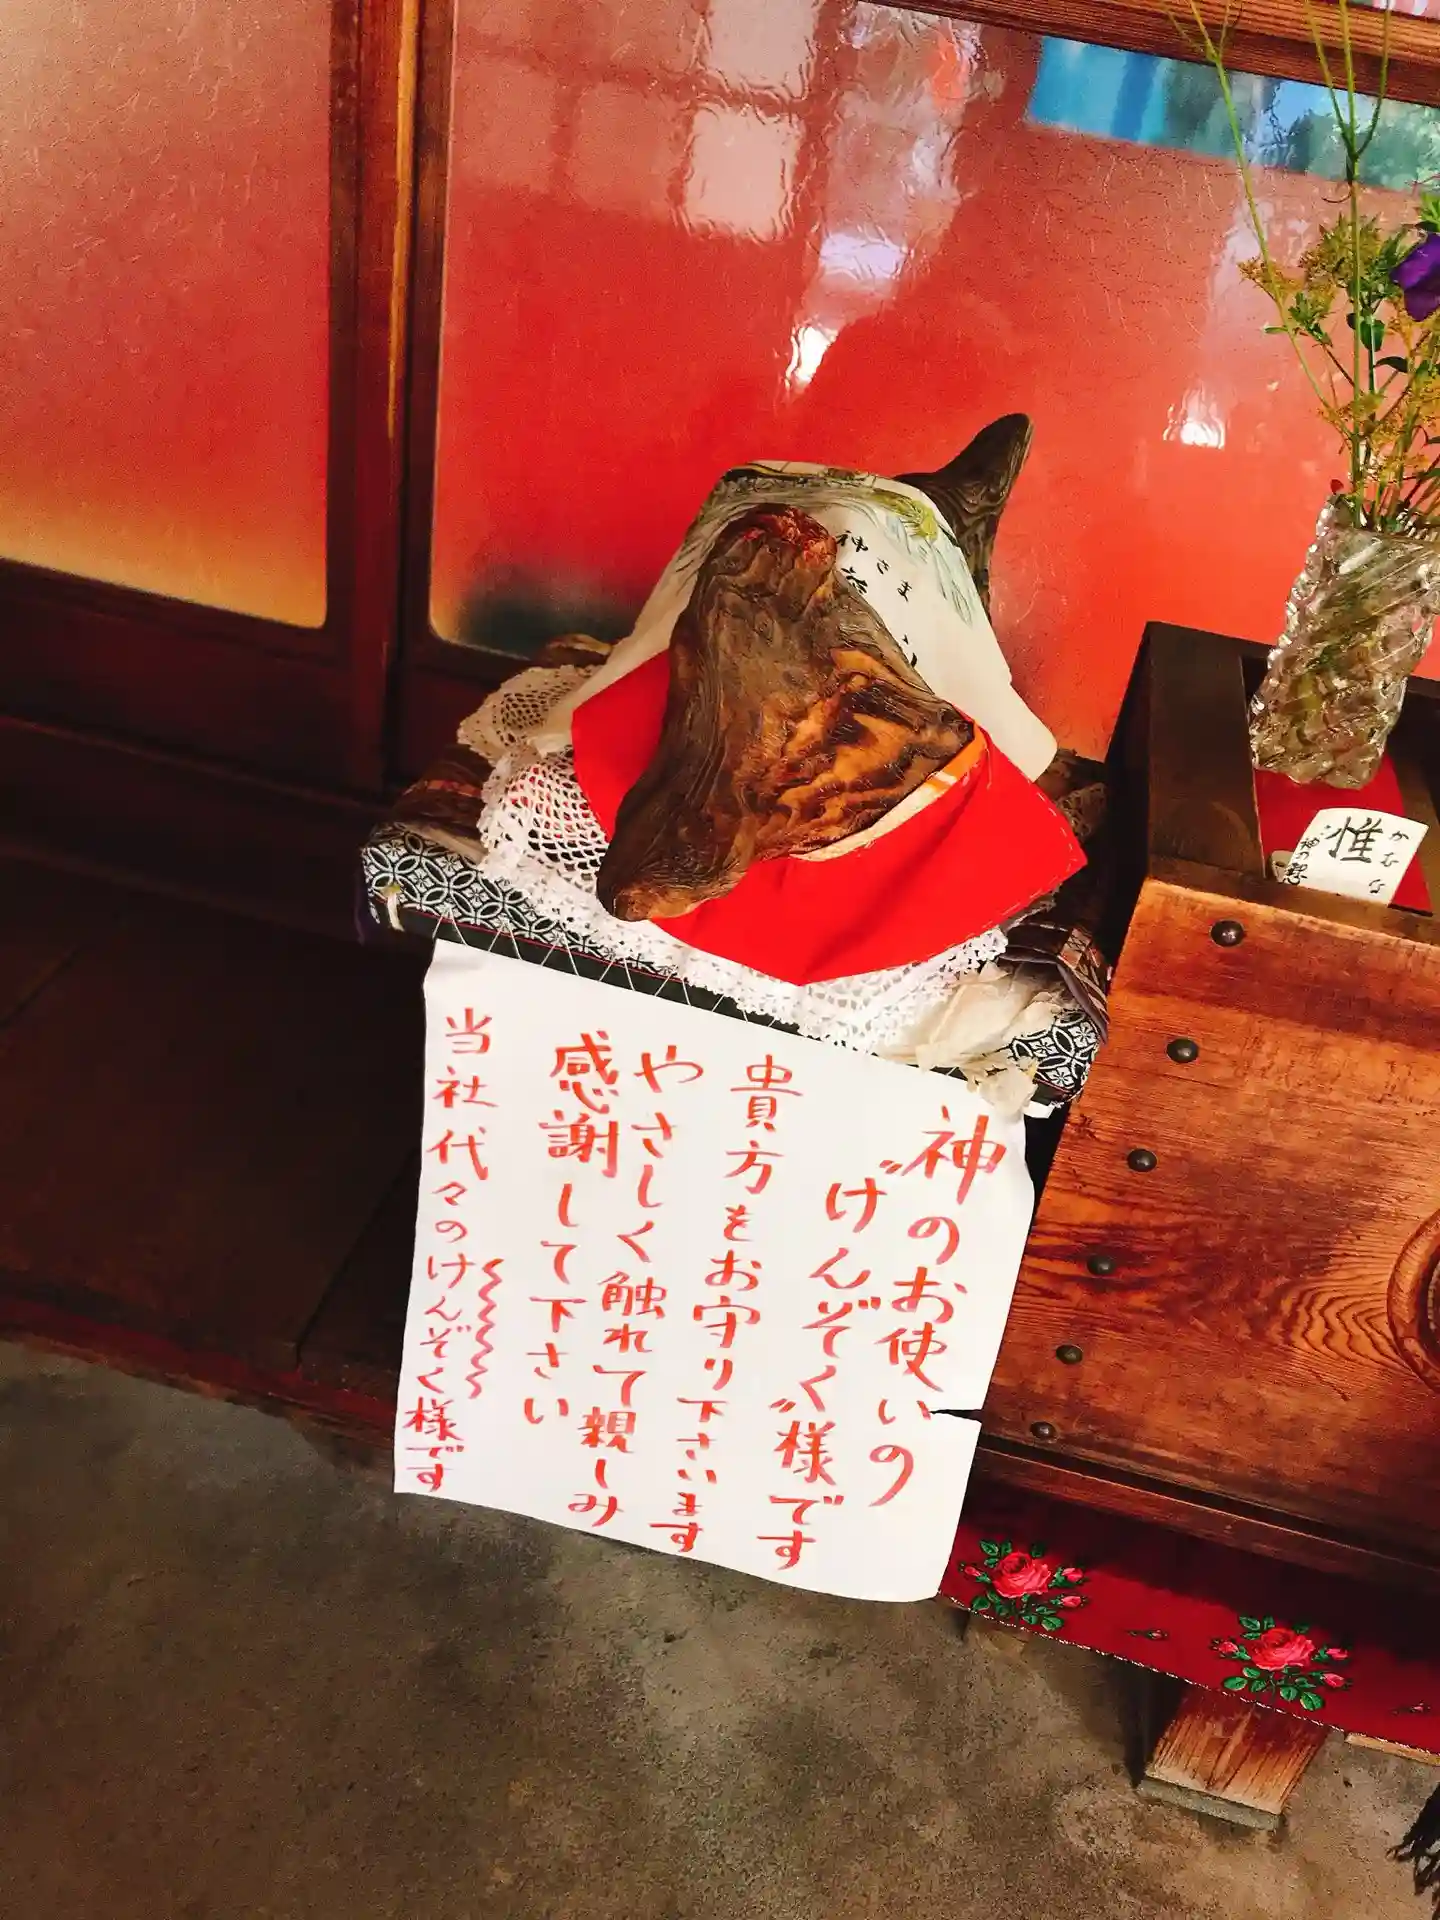 神のお使いの
〝けんぞく〟様です
貴方をお守り下さいます
やさしく触れて親しみ
感謝して下さい
当社代々のけんぞく様です
神さま
惟
かむな